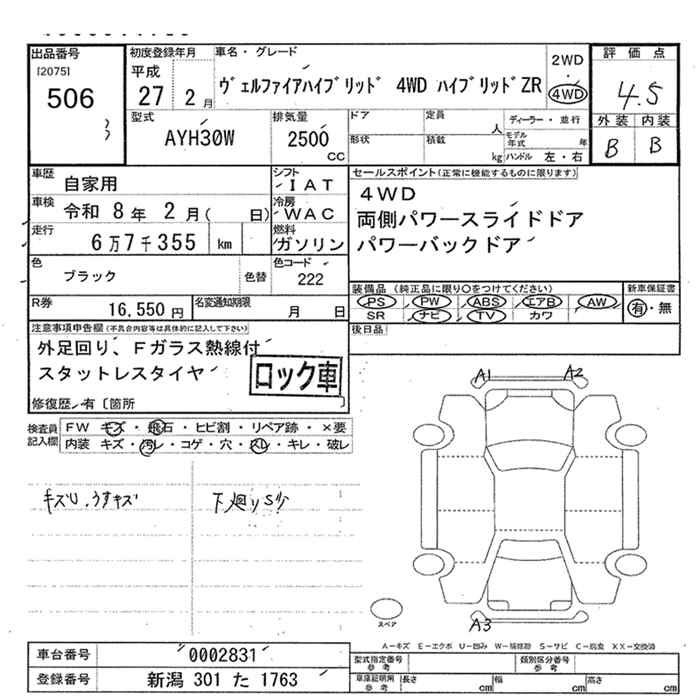 出品番号 初度登録年月 車名・グレード 2WD 評価点
[2075] 平成 ・
506 27 2月 ヴェルファイアハイブリッド 4WD ハイブリッドZR 4WD 4.5
型式 排気量 ドア 定員 人 ディーラー・並行 外装 内装
AYH30W 2500 CC 形状 積載 kg モデル年式 年 B B
ハンドル 左・右
車歴 自家用 シフト IAT セールスポイント(正常に機能するものに限ります)
車検 令和 8年 2月( 日) 冷房 WAC 4WD
両側パワースライドドア
走行 6万7千355 km 燃料 ガソリン パワーバックドア
色 ブラック 色替 色コード 222
装備品(純正品に限り○をつけてください) 新車保証書
R券 16,550円 名変通知期限 月 日 PS PW ABS エアB AW 有・無
SR ナビ TV カワ
注意事項申告欄(不具合内容等は具体的に記入して下さい) 後日品
外足回り、Fガラス熱線付
スタットレスタイヤ ロック車
修復歴 有〔箇所
A1 A2
検査員記入欄 FW キズ・飛石・ヒビ割・リペア跡・×要
内装 キズ・汚レ・コゲ・穴・スレ・キレ・破レ
キズU、うすキズ 下廻りS少
スペア A3
A－キズ E－エクボ U－凹み W－補修跡 S－サビ C－腐食 XX－交換済
車台番号 0002831 型式指定番号 参考 類別区分番号 参考
登録番号 新潟 301 た 1763 車庫証明用 参考 長さ cm 幅 cm 高さ cm